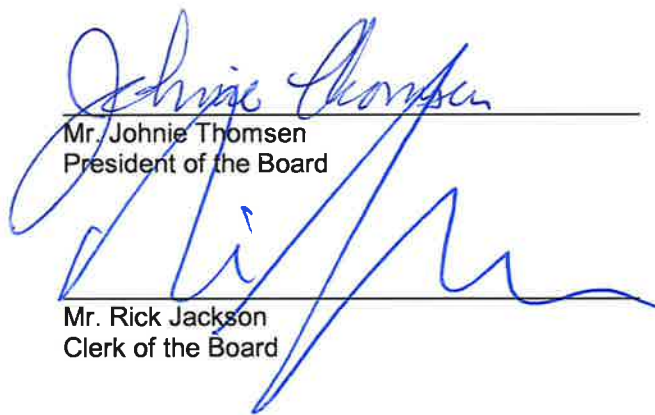 Johnie Thomsen
Mr. Johnie Thomsen
President of the Board
Mr. Rick Jackson
Clerk of the Board